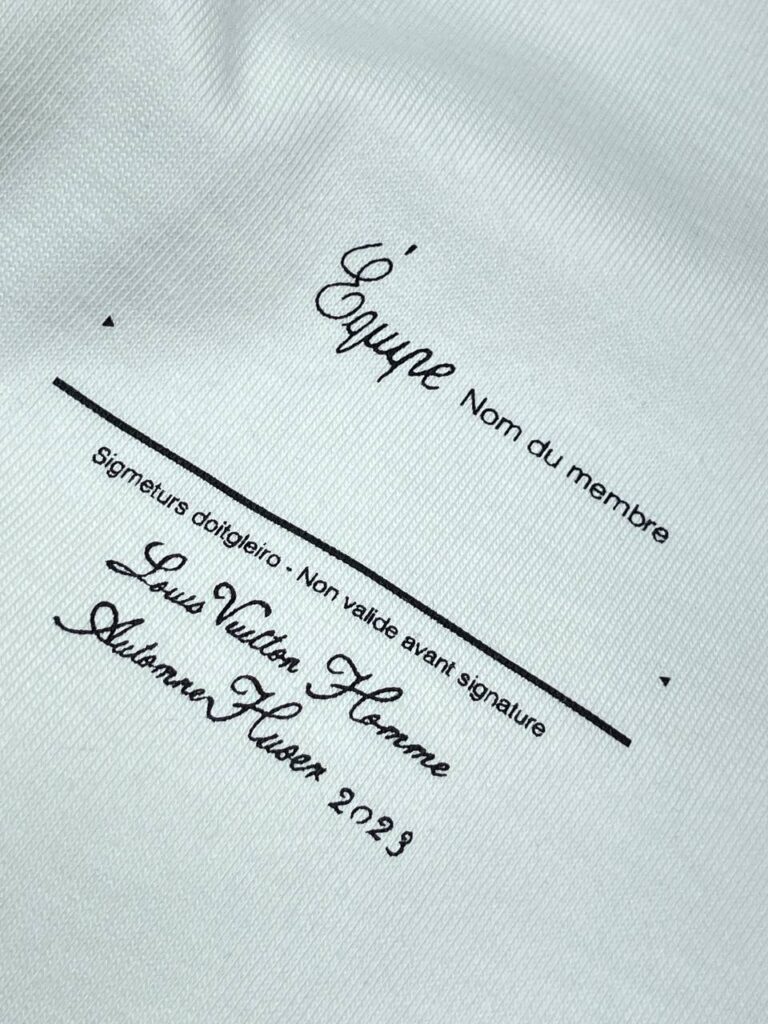 Équipe Nom du membre
Sigmeturs doitgleiro - Non valide avant signature
Louis Vuitton Homme
Automne Huser 2023